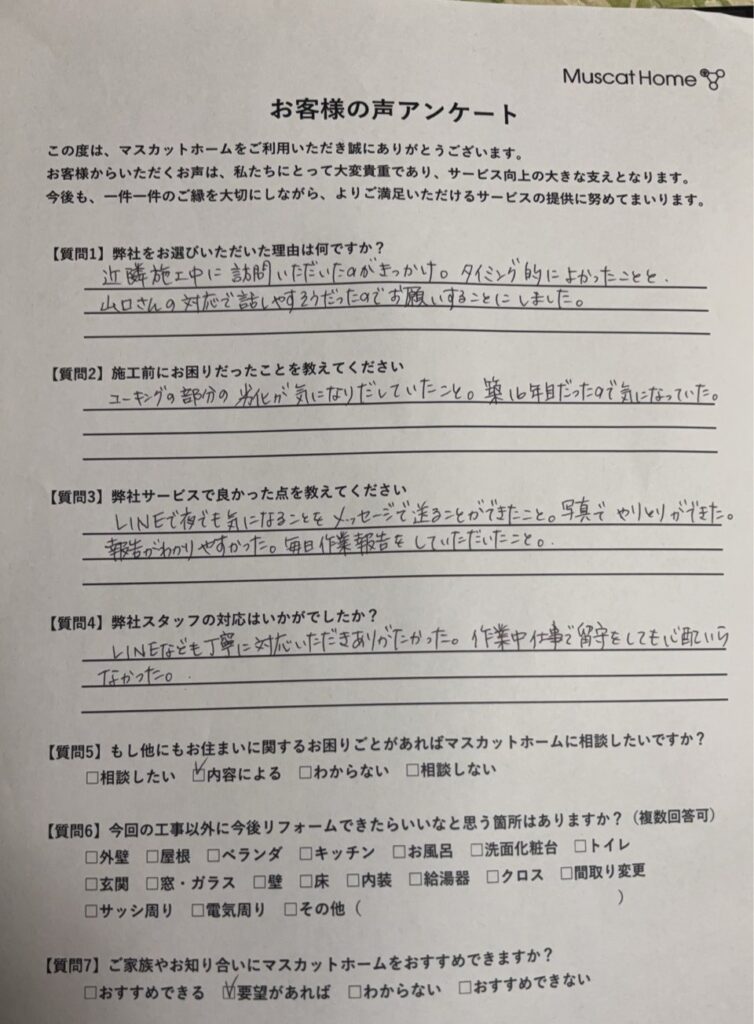 Muscat Home
お客様の声アンケート
この度は、マスカットホームをご利用いただき誠にありがとうございます。
お客様からいただくお声は、私たちにとって大変貴重であり、サービス向上の大きな支えとなります。
今後も、一件一件のご縁を大切にしながら、よりご満足いただけるサービスの提供に努めてまいります。
【質問1】弊社をお選びいただいた理由は何ですか？
近隣施工中に訪問いただいたのがきっかけ。タイミング的によかったことと、
山口さんの対応で話しやすそうだったのでお願いすることにしました。
【質問2】施工前にお困りだったことを教えてください
コーキングの部分の劣化が気になりだしていたこと。築16年目だったので気になっていた。
【質問3】弊社サービスで良かった点を教えてください
LINEで夜でも気になることをメッセージで送ることができたこと。写真でやりとりができた。
報告がわかりやすかった。毎日作業報告をしていただいたこと。
【質問4】弊社スタッフの対応はいかがでしたか？
LINEなども丁寧に対応いただきありがたかった。作業中仕事で留守をしても心配いら
なかった。
【質問5】もし他にもお住まいに関するお困りごとがあればマスカットホームに相談したいですか？
□相談したい ☑内容による □わからない □相談しない
【質問6】今回の工事以外に今後リフォームできたらいいなと思う箇所はありますか？（複数回答可）
□外壁 □屋根 □ベランダ □キッチン □お風呂 □洗面化粧台 □トイレ
□玄関 □窓・ガラス □壁 □床 □内装 □給湯器 □クロス □間取り変更
□サッシ周り □電気周り □その他（ ）
【質問7】ご家族やお知り合いにマスカットホームをおすすめできますか？
□おすすめできる ☑要望があれば □わからない □おすすめできない